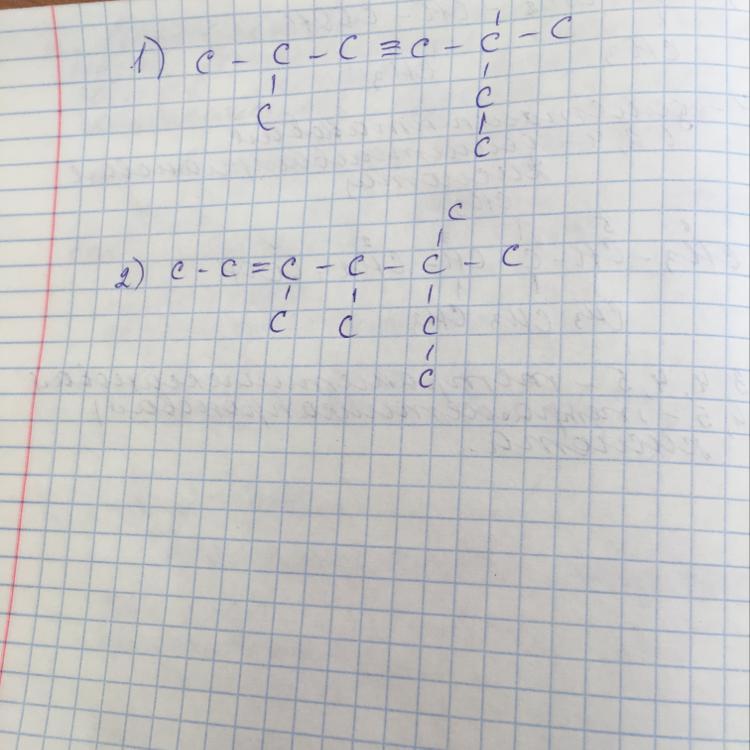 1) C - C - C ≡ C - C - C
C C
C
C
2) C - C = C - C - C - C
C C C
C